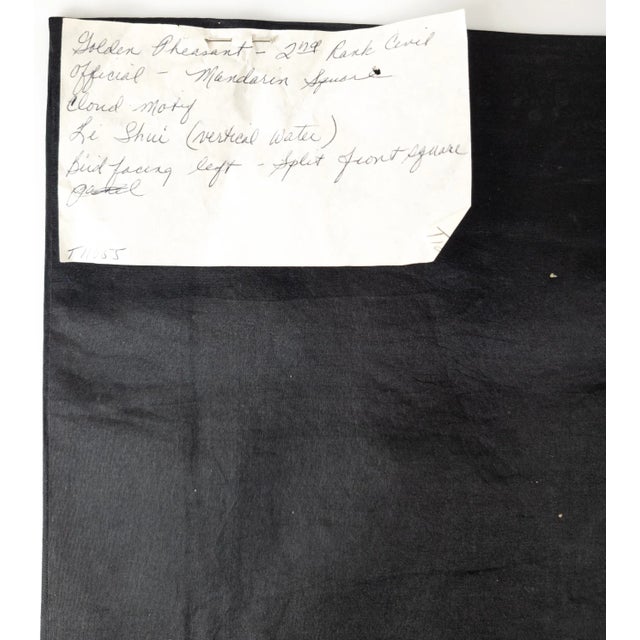 Golden Pheasant - 2nd Rank Civil
Official - Mandarin Square
Cloud motif
Li Shui (vertical water)
Bird facing left - Split front square